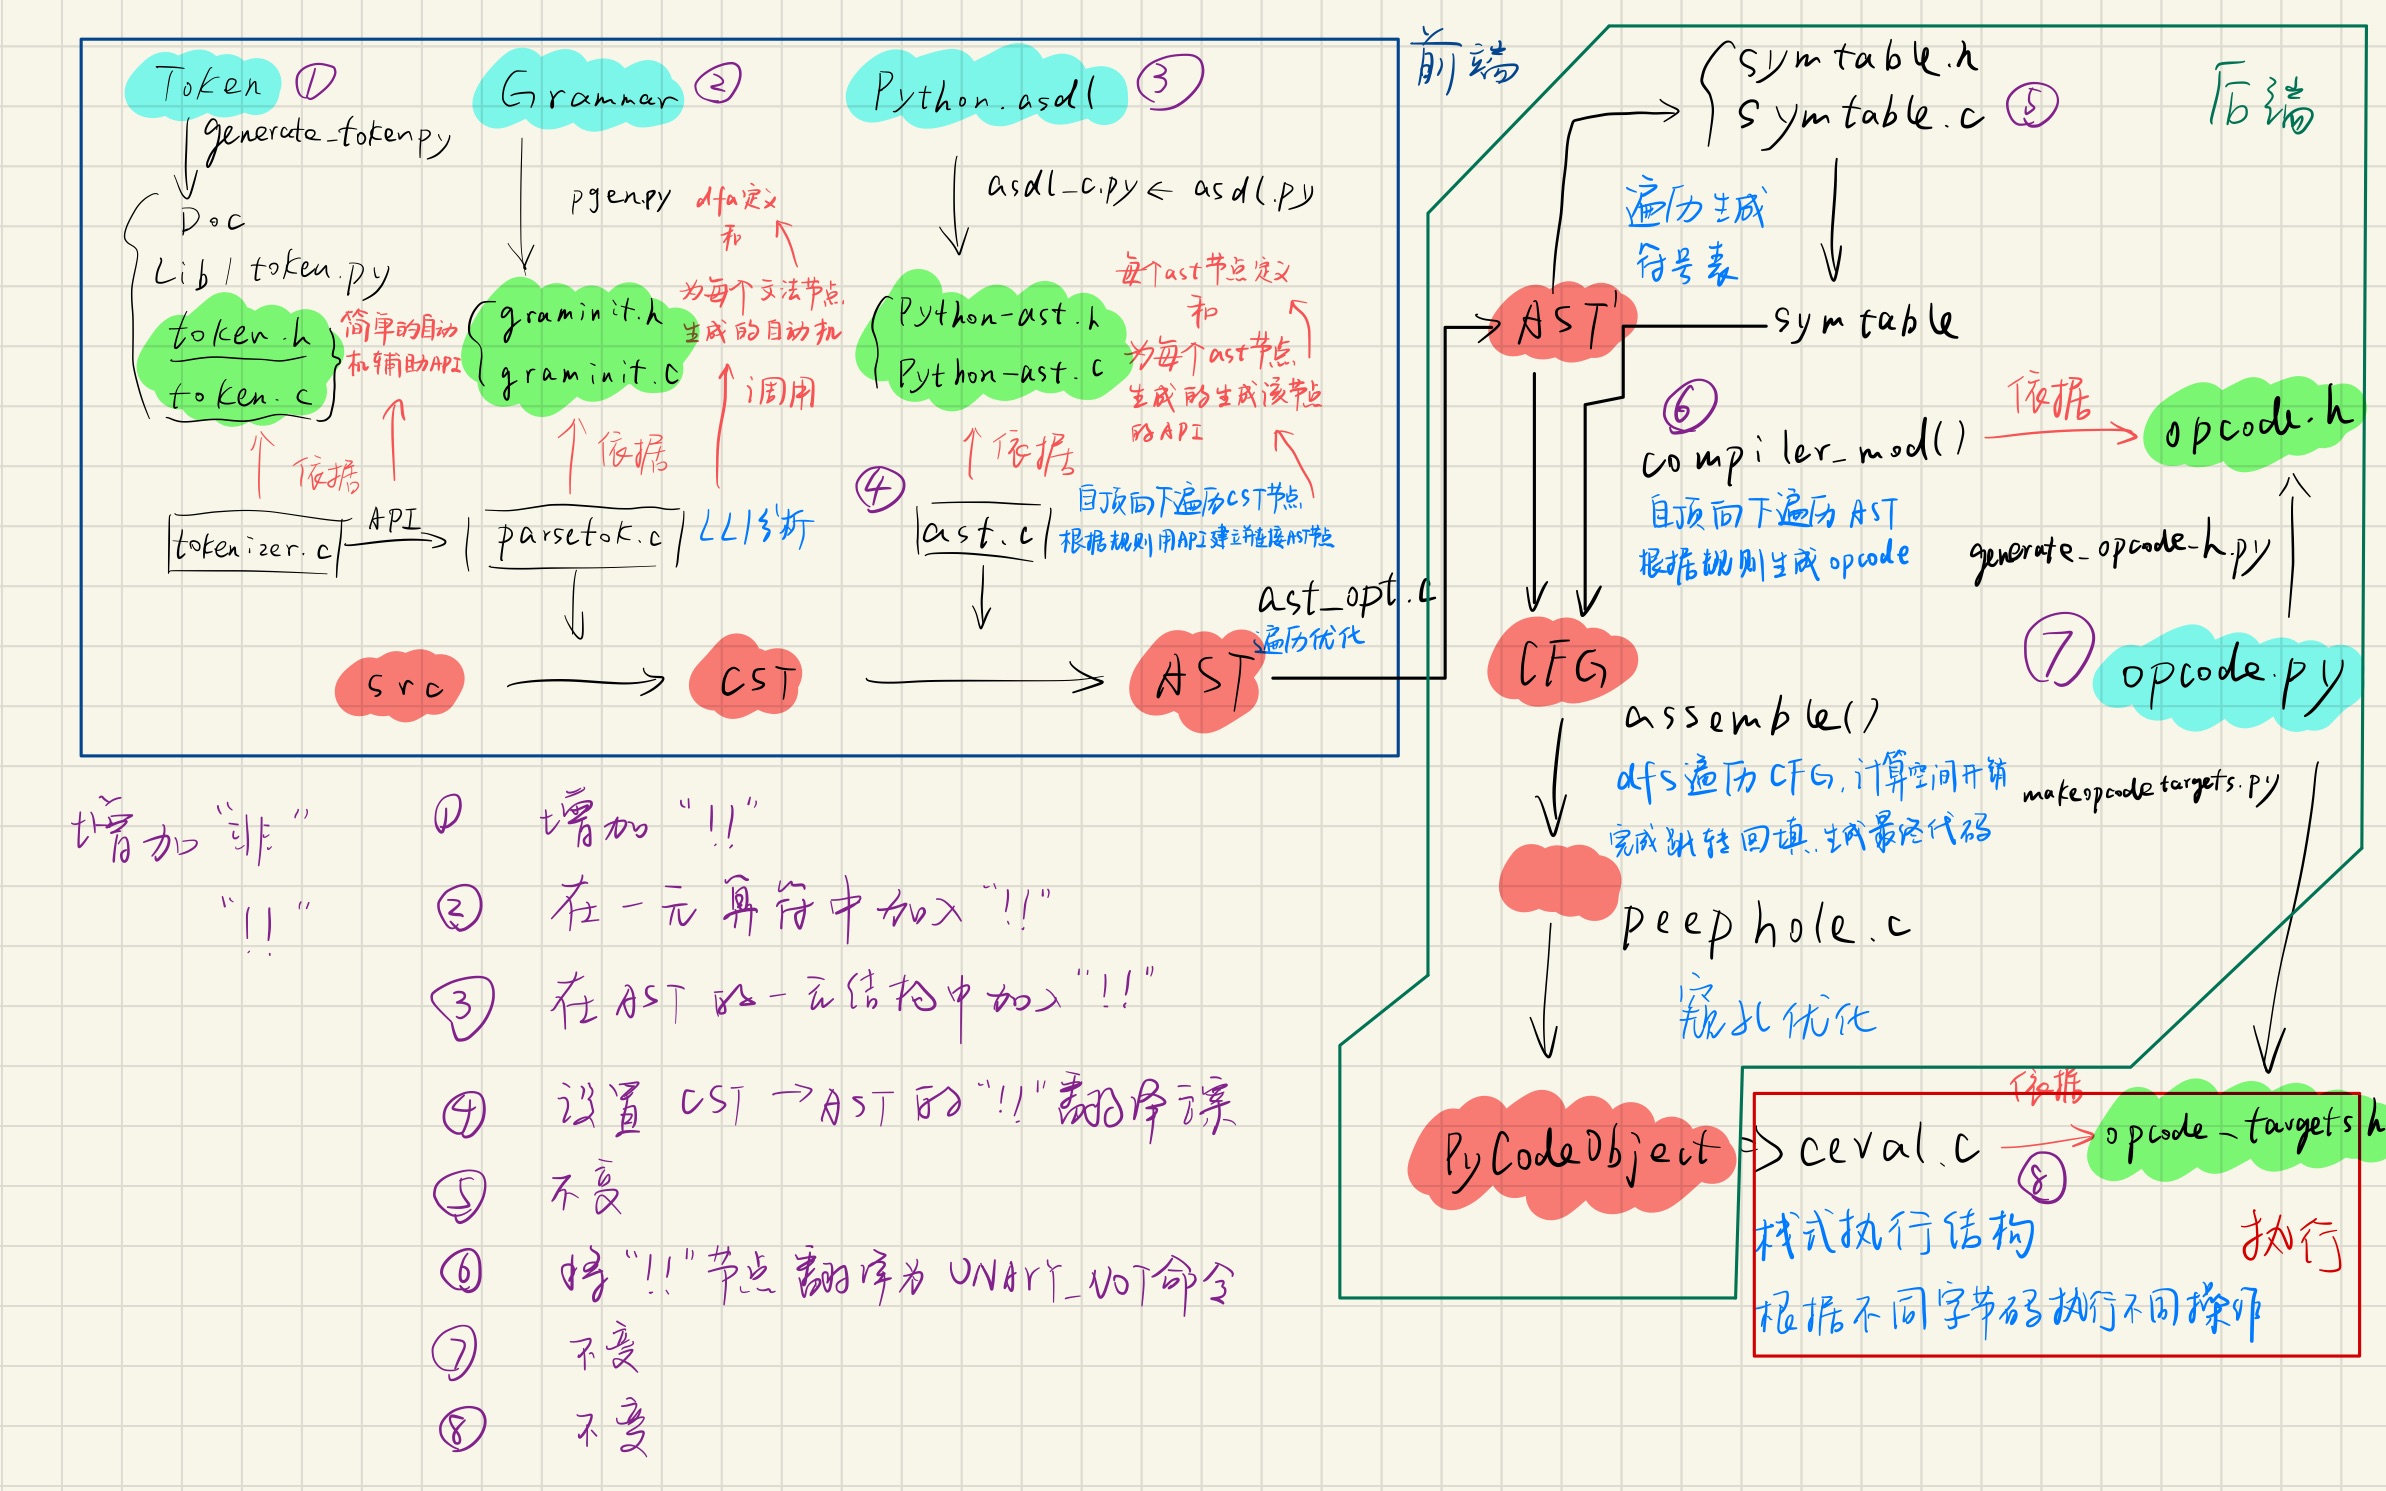 前端
Token ①
generate_token.py
Doc
Lib / token.py
token.h
token.c
简单的自动
机辅助API
依据
tokenizer.c
API
Grammar ②
pgen.py
dfa定义
和
为每个文法节点
生成的自动机
graminit.h
graminit.c
调用
依据
parsetok.c
LL1分析
Python.asdl ③
asdl_c.py ← asdl.py
Python-ast.h
Python-ast.c
每个ast节点定义
和
为每个ast节点
生成的生成该节点
的API
依据
④
ast.c
自顶向下遍历CST节点
根据规则用API建立并链接AST节点
src
CST
AST
ast_opt.c
遍历优化
后端
symtable.h
symtable.c ⑤
遍历生成
符号表
AST'
symtable
⑥
compiler_mod()
依据
opcode.h
自顶向下遍历AST
根据规则生成opcode
generate_opcode_h.py
CFG
⑦
opcode.py
assemble()
dfs遍历CFG,计算空间开销
完成跳转回填,生成最终代码
makeopcodetargets.py
peephole.c
窥孔优化
PyCodeObject
ceval.c
依据
⑧
opcode_targets.h
栈式执行结构
执行
根据不同字节码执行不同操作
增加"非"
"!!"
① 增加"!!"
② 在一元算符中加入"!!"
③ 在AST的一元结构中加入"!!"
④ 设置CST→AST的"!!"翻译方案
⑤ 不变
⑥ 将"!!"节点翻译为UNARY_NOT命令
⑦ 不变
⑧ 不变